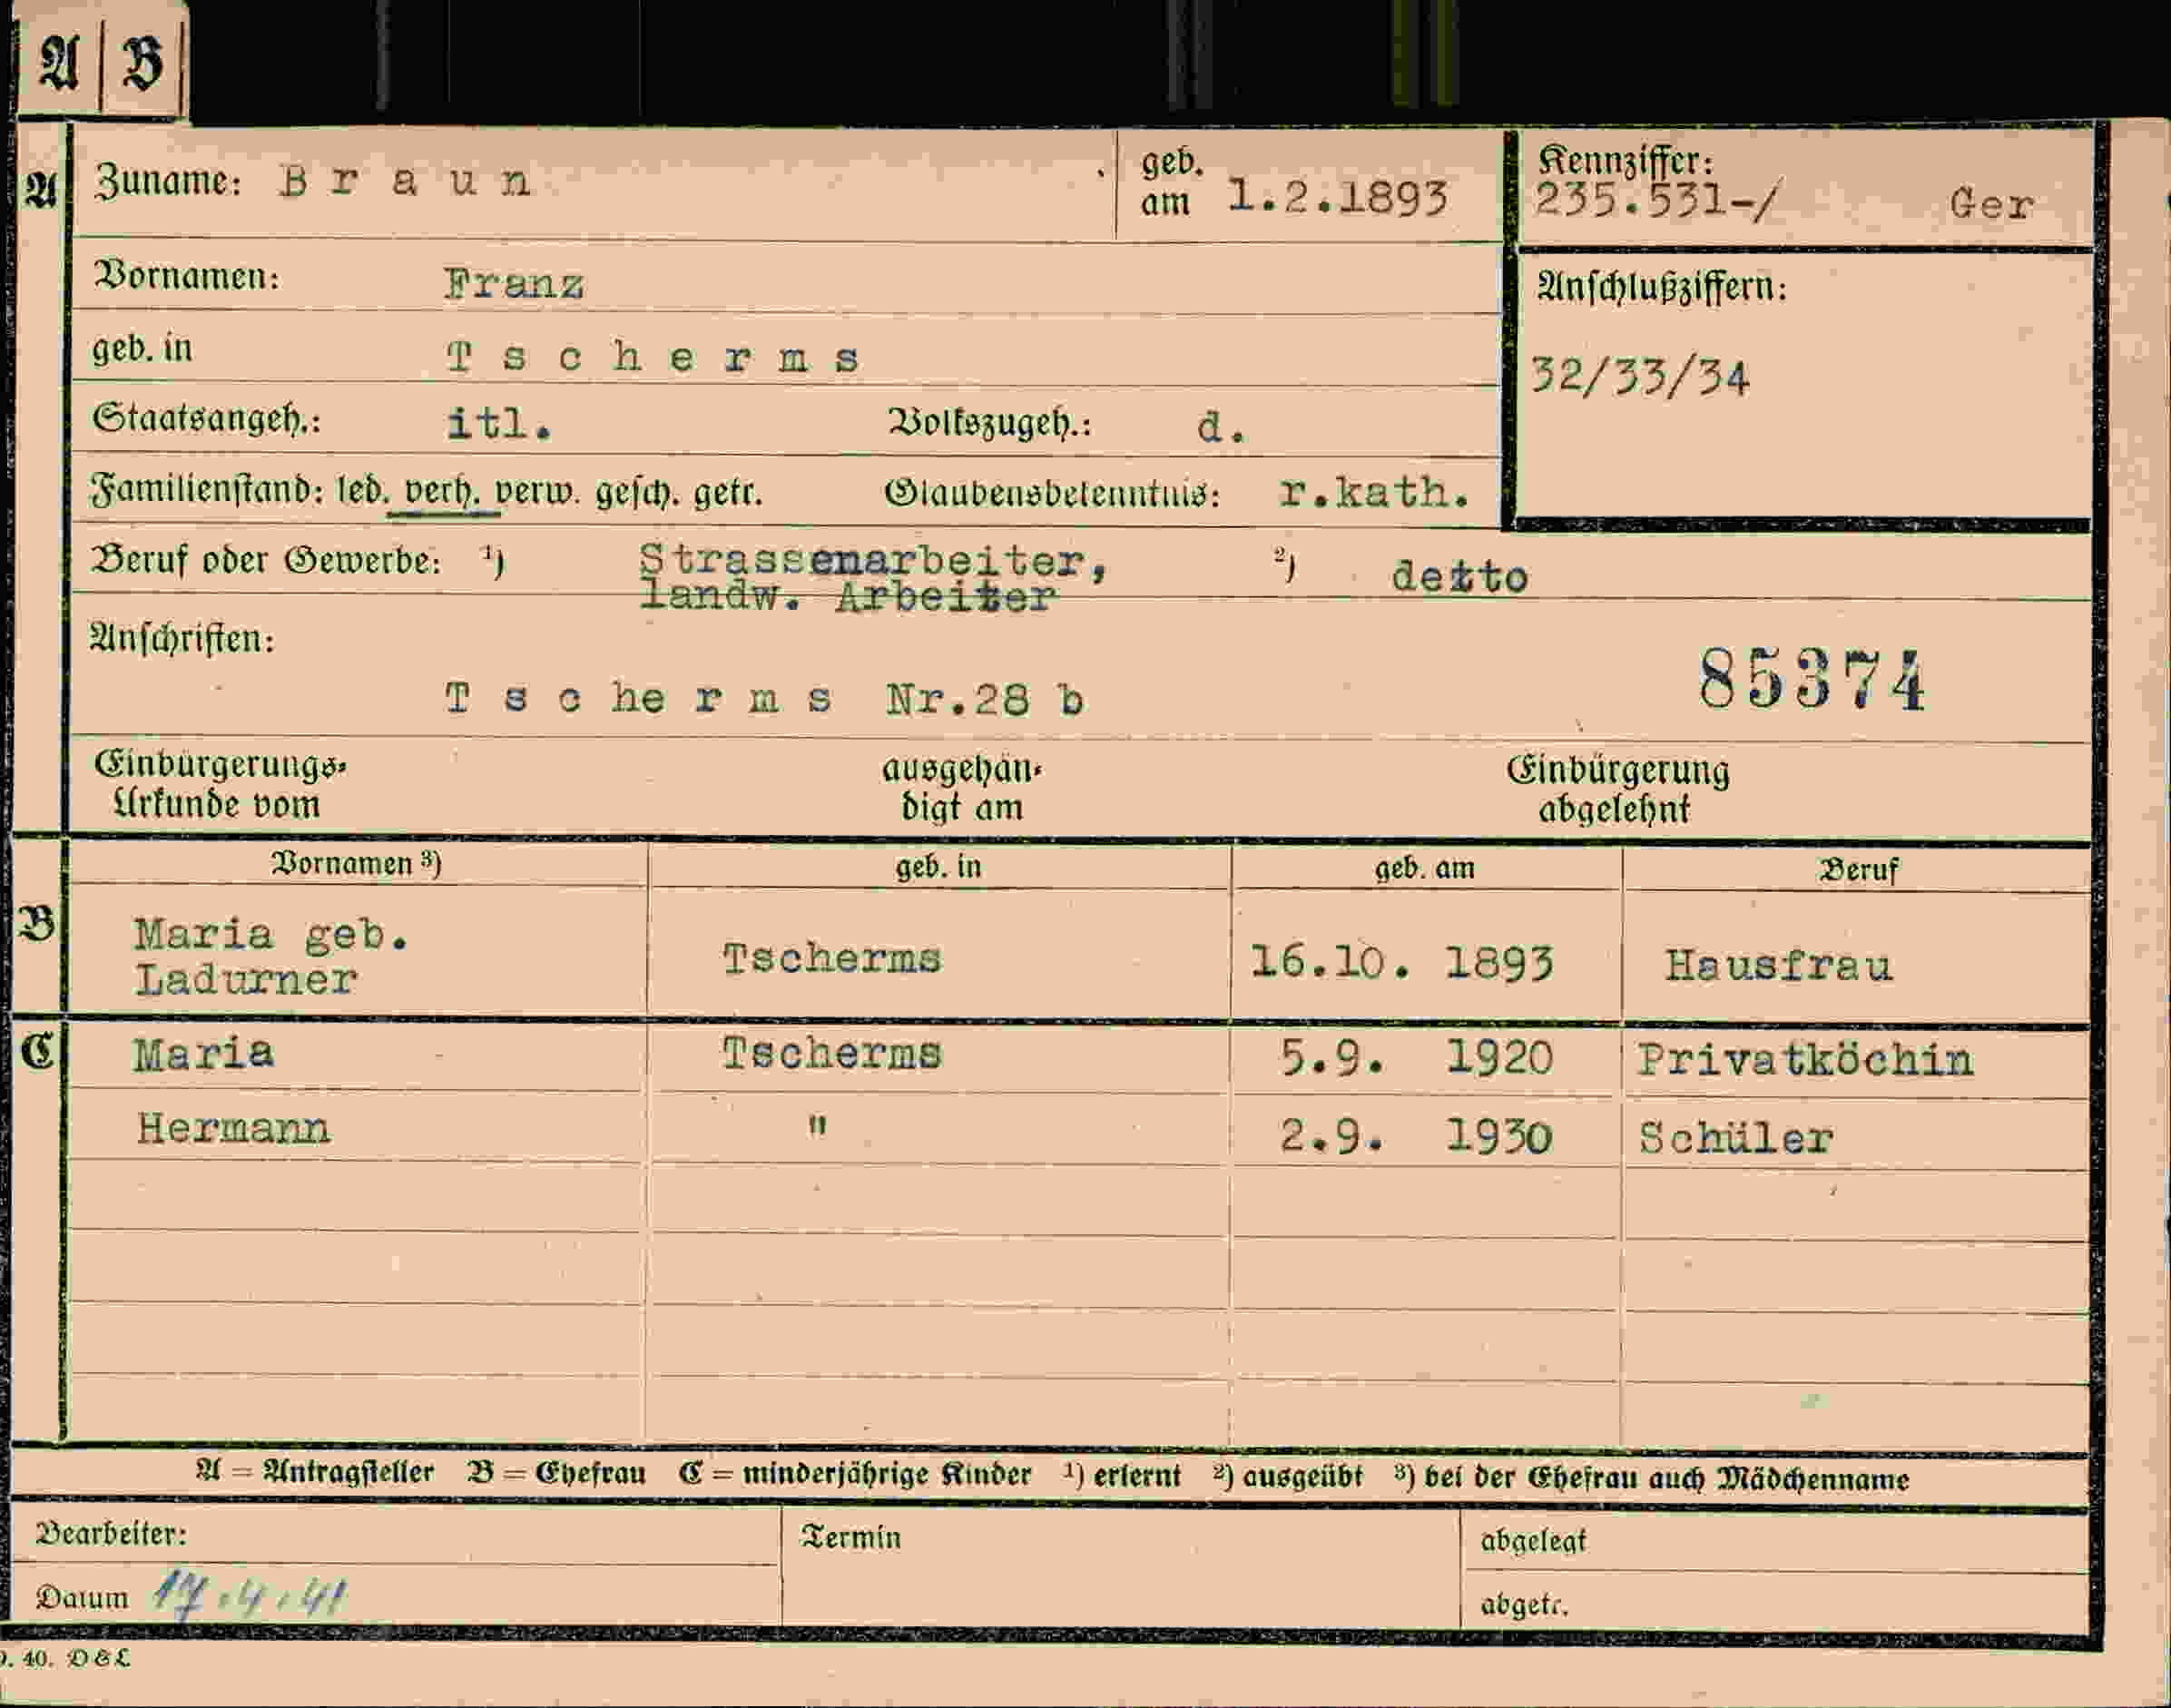 A B
A Zuname: Braun geb. am 1.2.1893 Kennziffer: 235.531-/ Ger
Vornamen: Franz
Anschlußziffern:
geb. in Tscherms
32/33/34
Staatsangeh.: itl. Volkszugeh.: d.
Familienstand: led. verh. verw. gesch. getr. Glaubensbekenntnis: r.kath.
Beruf oder Gewerbe: 1) Strassenarbeiter, 2) detto
landw. Arbeiter
Anschriften:
Tscherms Nr.28 b 85374
Einbürgerungs- ausgehän- Einbürgerung
Urkunde vom digt am abgelehnt
Vornamen 3) geb. in geb. am Beruf
B Maria geb. Tscherms 16.10. 1893 Hausfrau
Ladurner
C Maria Tscherms 5.9. 1920 Privatköchin
Hermann " 2.9. 1930 Schüler
A = Antragsteller B = Ehefrau C = minderjährige Kinder 1) erlernt 2) ausgeübt 3) bei der Ehefrau auch Mädchenname
Bearbeiter: Termin abgelegt
Datum 17.4.41 abgetr.
9. 40. D & L